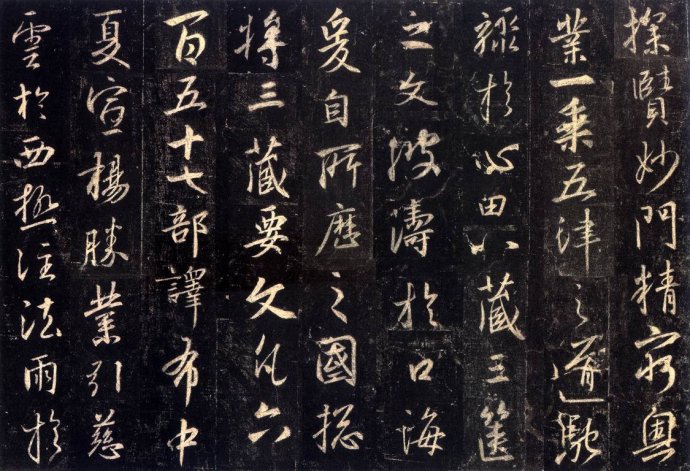 探賾妙門精窮奧
業一乘五律之道馳
驟於心田八藏三篋
之文波濤於口海
爰自所歷之國揔
將三藏要文凡六
百五十七部譯布中
夏宣揚勝業引慈
雲於西極注法雨於